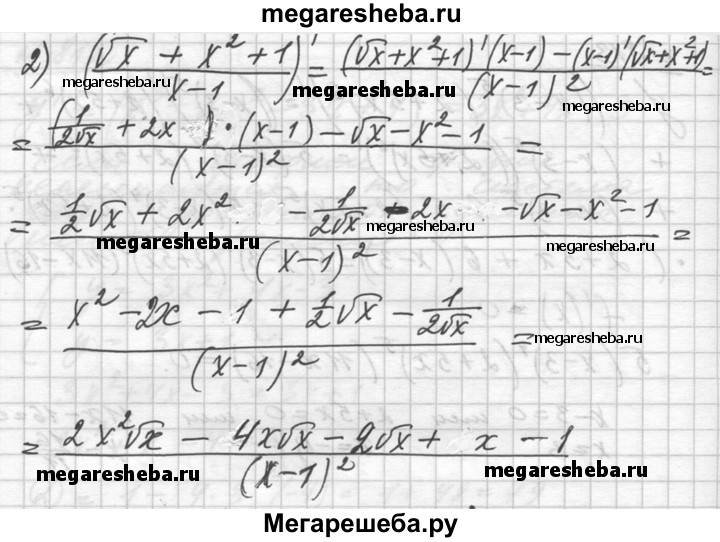 megaresheba.ru
2) ((√x + x² + 1)/(x-1))' = ((√x+x²+1)'(x-1) - (x-1)'(√x+x²+1))/(x-1)² =
megaresheba.ru megaresheba.ru megaresheba.ru
= ((1/(2√x) + 2x)·(x-1) - √x - x² - 1)/(x-1)² =
= (1/2√x + 2x² - 1/(2√x) - 2x - √x - x² - 1)/(x-1)² =
megaresheba.ru megaresheba.ru megaresheba.ru
= (x² - 2x - 1 + 1/2√x - 1/(2√x))/(x-1)² =
megaresheba.ru
= (2x²√x - 4x√x - 2√x + x - 1)/(x-1)²
megaresheba.ru megaresheba.ru
Мегарешеба.ру